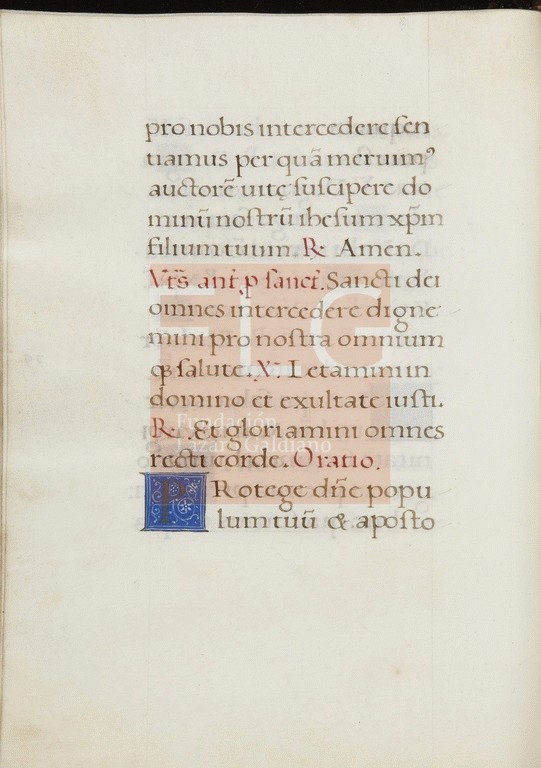 pro nobis intercedere sen
tiamus per quā meruimꝰ
auctorē uitę suscipere do
minū nostrū ihesum xp̄m
filium tuum. ℟ Amen.
Vt̄s ant̄. ꝓ sanct̄. Sancti dei
omnes intercedere digne
mini pro nostra omnium
qꝫ salute. ℣ Letamini in
domino et exultate iusti.
℟ Et gloriamini omnes
recti corde. Oratio.
PRotege dn̄e popu
lum tuū & aposto
FLG
Fundación
Lázaro Galdiano